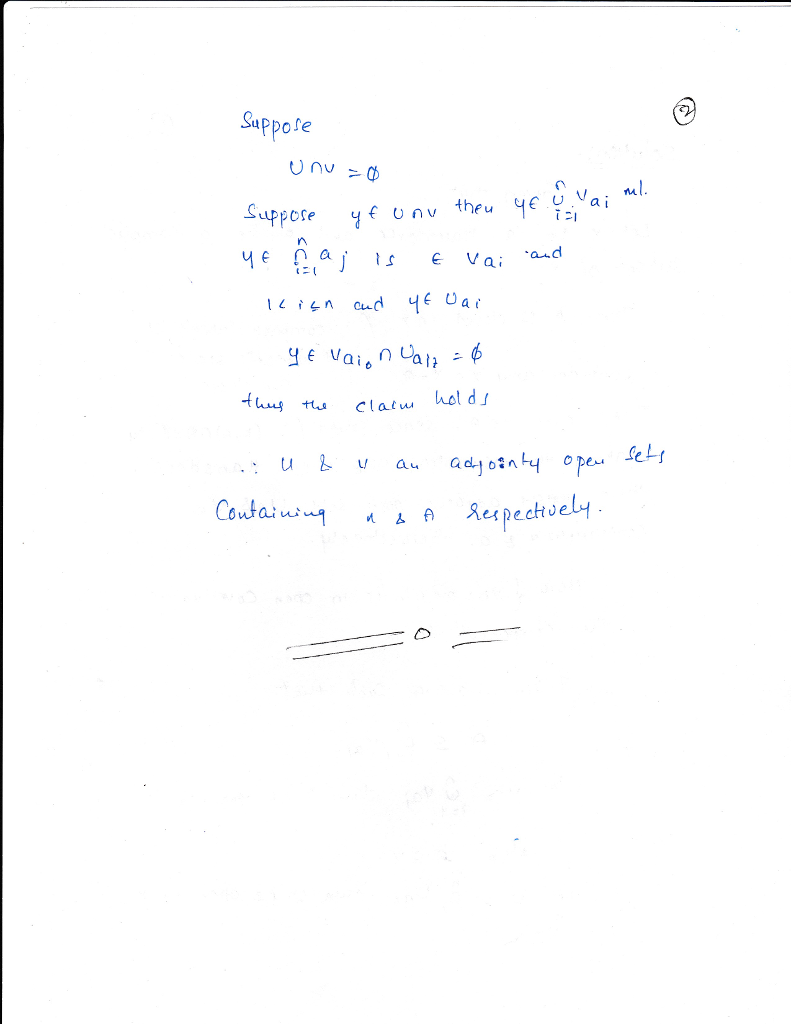 ②
Suppose
U ∩ V = ϕ
Suppose y ∈ U ∩ V then y ∈ ⋃ⁿᵢ₌₁ Vai
y ∈ ⋂ⁿᵢ₌₁ aj is ∈ Vai and
1 < i ≤ n and y ∈ Uai
y ∈ Vai₀ ∩ Ua = ϕ
thus the claim holds
∴ U & V an adjointy open sets
Containing x & A Respectively.